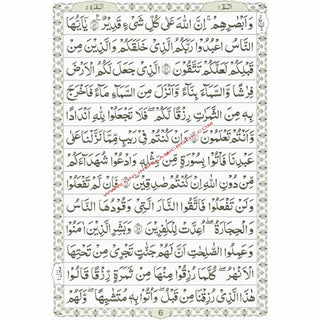 البقرة ٢
الٓمّٓ ١
وَاَبْصَارِهِمْ ؕ اِنَّ اللّٰهَ عَلٰى كُلِّ شَىْءٍ قَدِيْرٌ ۝ يٰۤاَيُّهَا
النَّاسُ اعْبُدُوْا رَبَّكُمُ الَّذِىْ خَلَقَكُمْ وَالَّذِيْنَ مِنْ
قَبْلِكُمْ لَعَلَّكُمْ تَتَّقُوْنَ ۝ الَّذِىْ جَعَلَ لَكُمُ الْاَرْضَ
فِرَاشًا وَّالسَّمَآءَ بِنَآءً وَّاَنْزَلَ مِنَ السَّمَآءِ مَآءً فَاَخْرَجَ
بِهٖ مِنَ الثَّمَرٰتِ رِزْقًا لَّكُمْ ۚ فَلَا تَجْعَلُوْا لِلّٰهِ اَنْدَادًا
وَّاَنْتُمْ تَعْلَمُوْنَ ۝ وَاِنْ كُنْتُمْ فِىْ رَيْبٍ مِّمَّا نَزَّلْنَا عَلٰى
عَبْدِنَا فَاْتُوْا بِسُوْرَةٍ مِّنْ مِّثْلِهٖ وَادْعُوْا شُهَدَآءَكُمْ
مِّنْ دُوْنِ اللّٰهِ اِنْ كُنْتُمْ صٰدِقِيْنَ ۝ فَاِنْ لَّمْ تَفْعَلُوْا
وَلَنْ تَفْعَلُوْا فَاتَّقُوا النَّارَ الَّتِىْ وَقُوْدُهَا النَّاسُ
وَالْحِجَارَةُ ۚ اُعِدَّتْ لِلْكٰفِرِيْنَ ۝ وَبَشِّرِ الَّذِيْنَ اٰمَنُوْا
وَعَمِلُوا الصّٰلِحٰتِ اَنَّ لَهُمْ جَنّٰتٍ تَجْرِىْ مِنْ تَحْتِهَا
الْاَنْهٰرُ ؕ كُلَّمَا رُزِقُوْا مِنْهَا مِنْ ثَمَرَةٍ رِّزْقًا ۙ قَالُوْا
هٰذَا الَّذِىْ رُزِقْنَا مِنْ قَبْلُ ۙ وَاُتُوْا بِهٖ مُتَشَابِهًا ؕ وَلَهُمْ
6